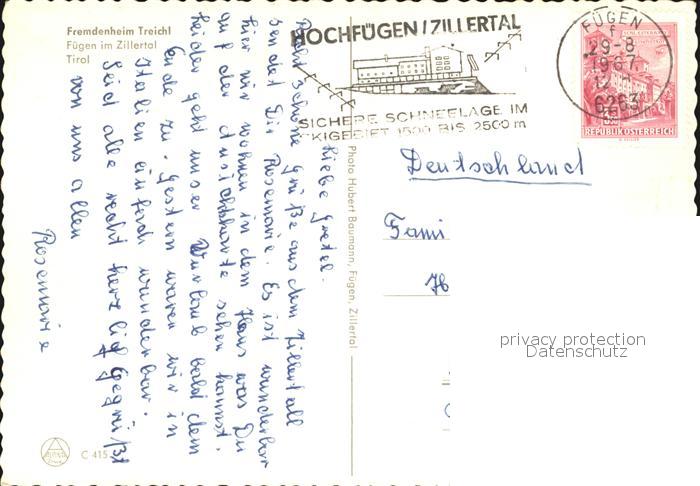 Fremdenheim Treichl
Fügen im Zillertal
Tirol
HOCHFÜGEN/ZILLERTAL
SICHERE SCHNEELAGE IM
SKIGEBIET 1500 BIS 2500 m
FÜGEN
f
29-8
1967
12
6263
REPUBLIK ÖSTERREICH
Deutschland
Fami
H
Photo Hubert Baumann, Fügen, Zillertal
Liebe Gretel.
Recht schöne Grüße aus dem Zillertall
sendet Dir Rosemarie. Es ist wunderbar
hier wir wohnen in dem Haus was Du
auf der Ansichtskarte sehen kannst.
Leider geht unser Uurlaub bald dem
Ende zu. Gestern waren wir in
Italien einfach wunderbar.
Seid alle recht herzlich gegrüßt
von uns allen
Rosemarie
C 415
privacy protection
Datenschutz